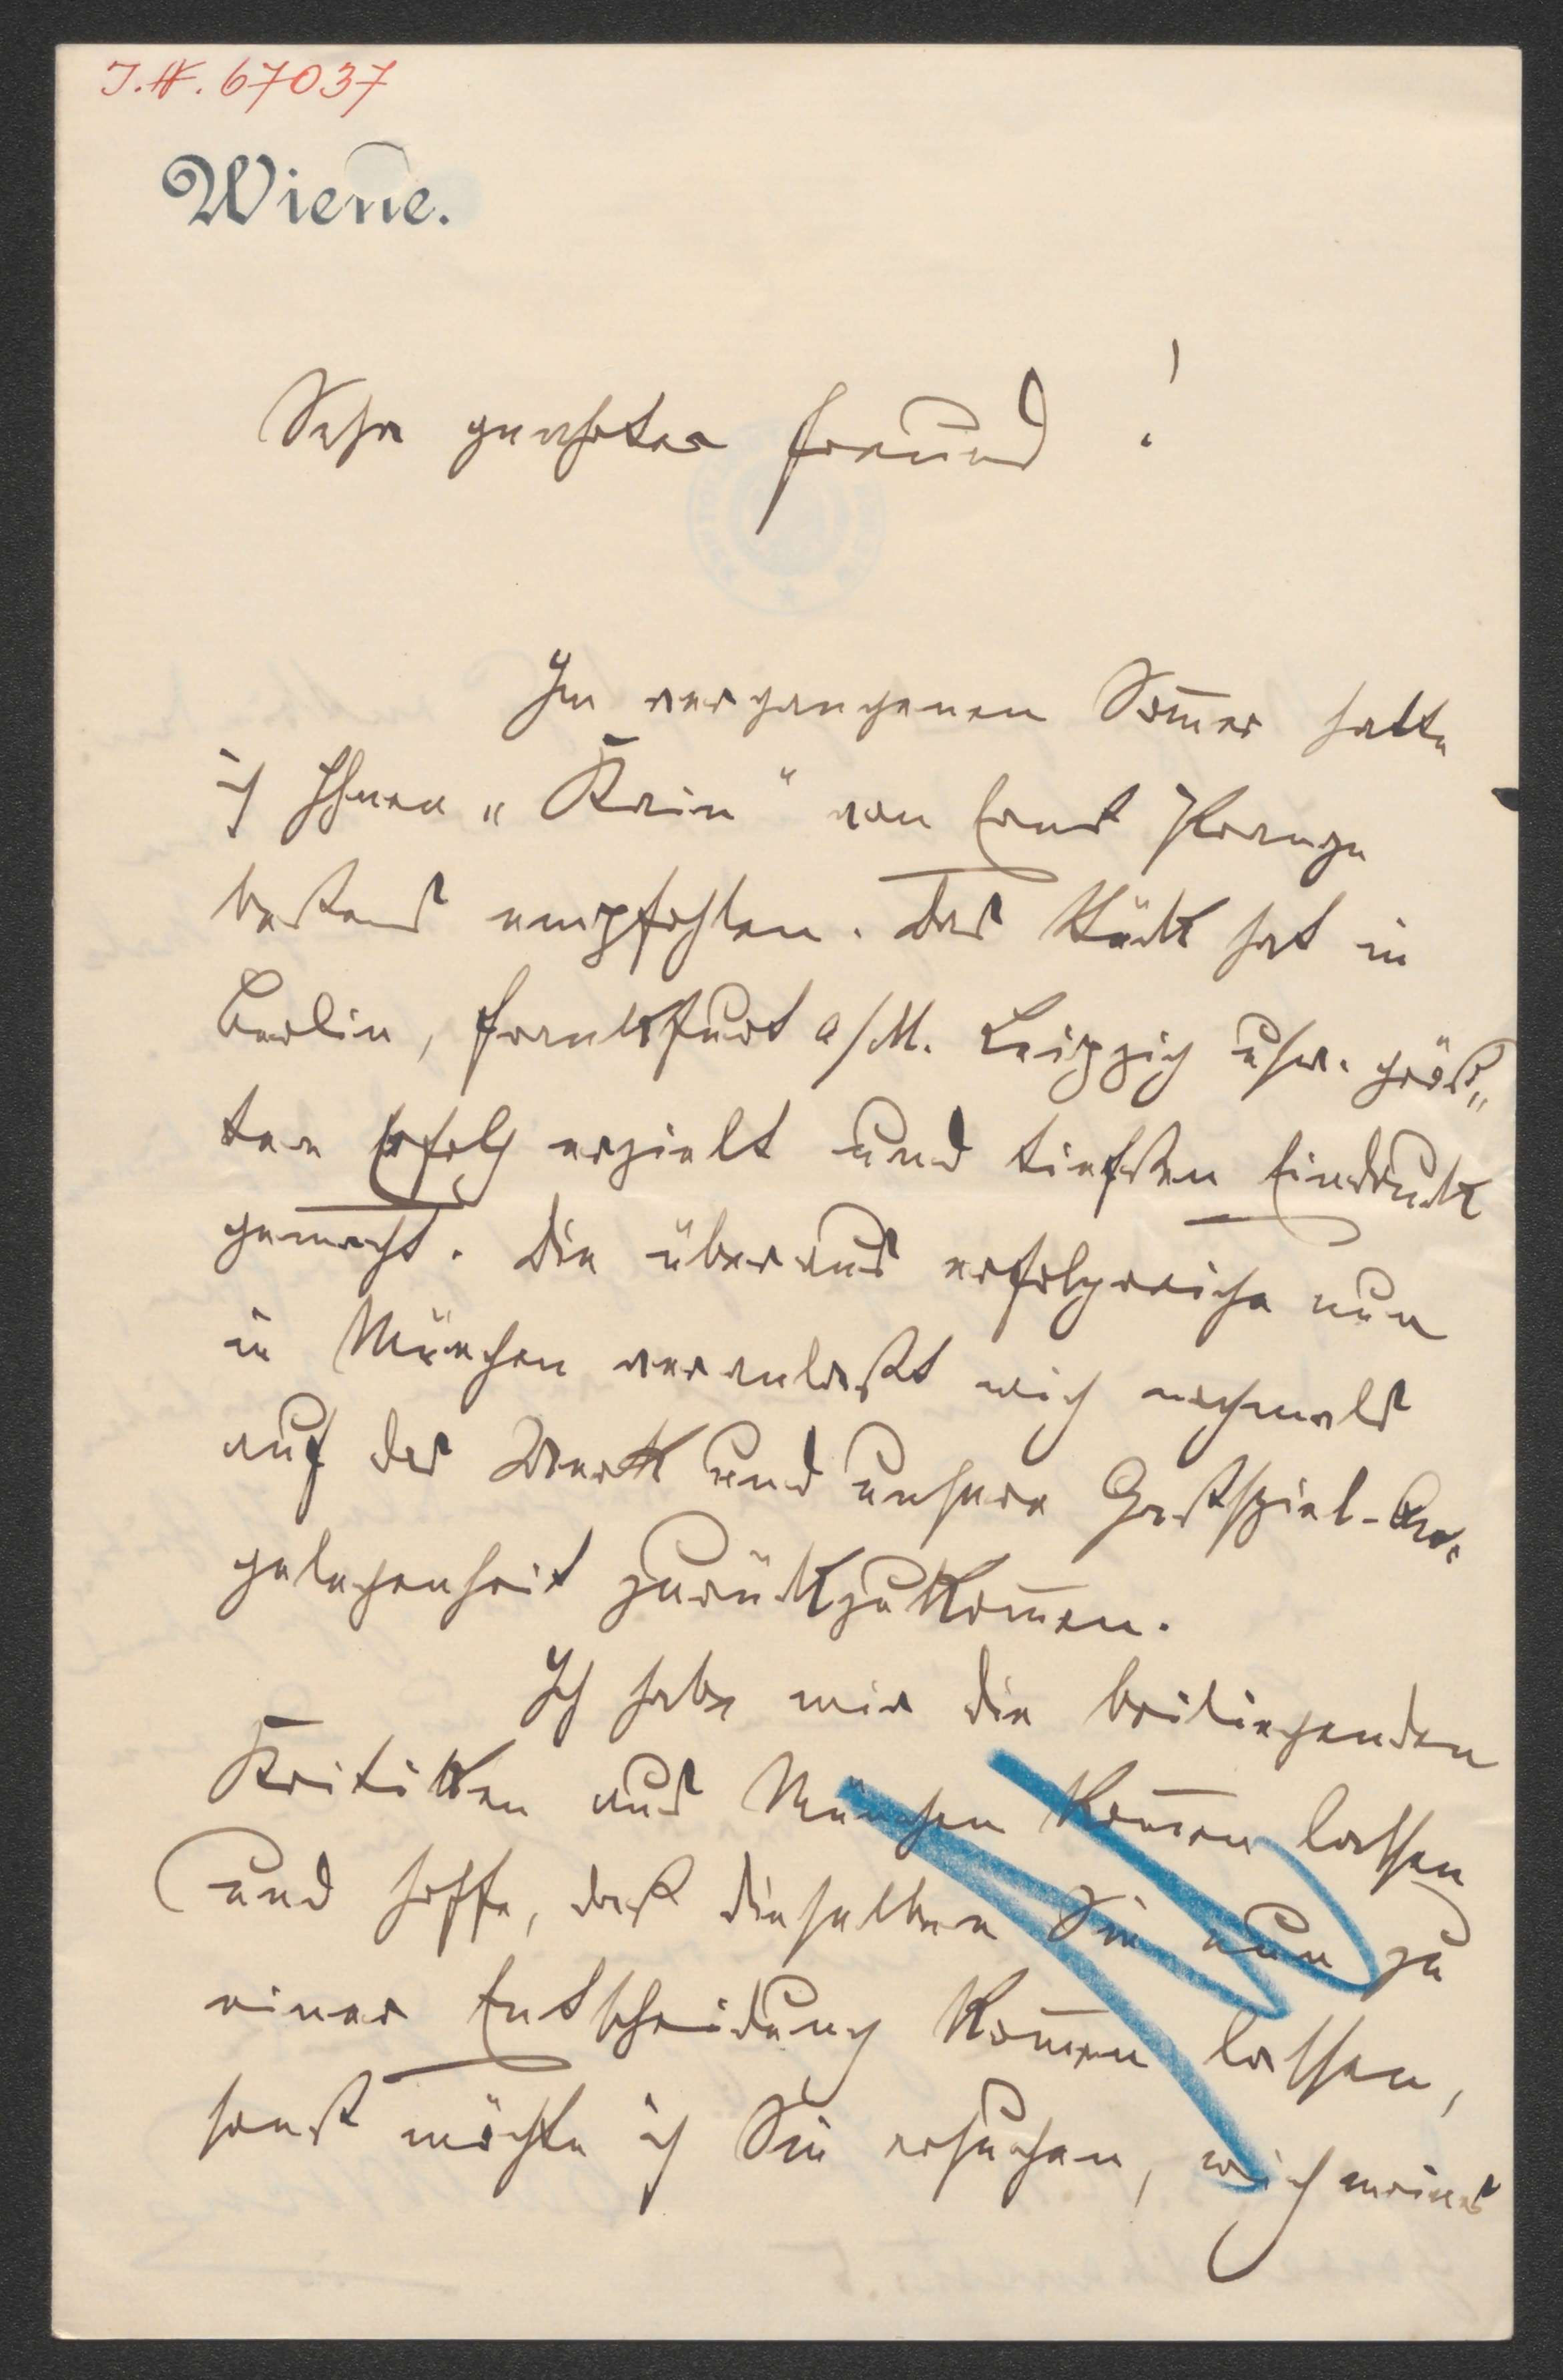 J.N. 67037
Wiene.
Sehr geehrter Freund!
Im vergangenen Som̄er hatte
ich Ihnen „Kain" von Ernst Prange
bestens empfohlen. Das Stück hat in
Berlin, Frankfurt a/M. Leipzig usw. größ„
ten Erfolg erzielt und tiefsten Eindruck
gemacht. Die überaus erfolgreiche nun
in München veranlaßt mich nochmals
auf das Werk und unsere Gastspiel-An„
gelegenheit zurückzukom̄en.
Ich habe mir die beiliegenden
Kritiken aus München kom̄en lassen
und hoffe, daß dieselben Sie nun zu
einer Entscheidung kom̄en lassen,
sonst möchte ich Sie ersuchen, mich meines